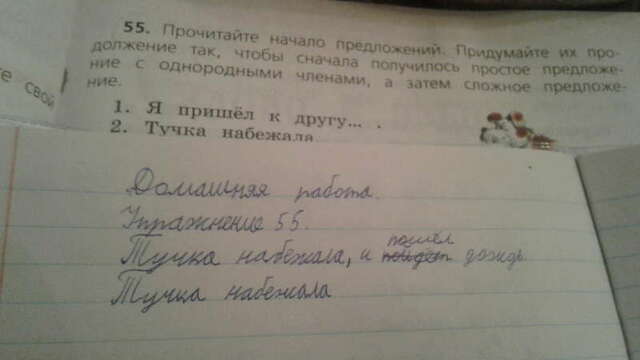 55. Прочитайте начало предложений. Придумайте их про-
должение так, чтобы сначала получилось простое предложе-
ние с однородными членами, а затем сложное предложе-
ние.
1. Я пришёл к другу... .
2. Тучка набежала
свой
Домашняя работа.
Упражнение 55.
пошёл
Тучка набежала, и пойдёт дождь.
Тучка набежала